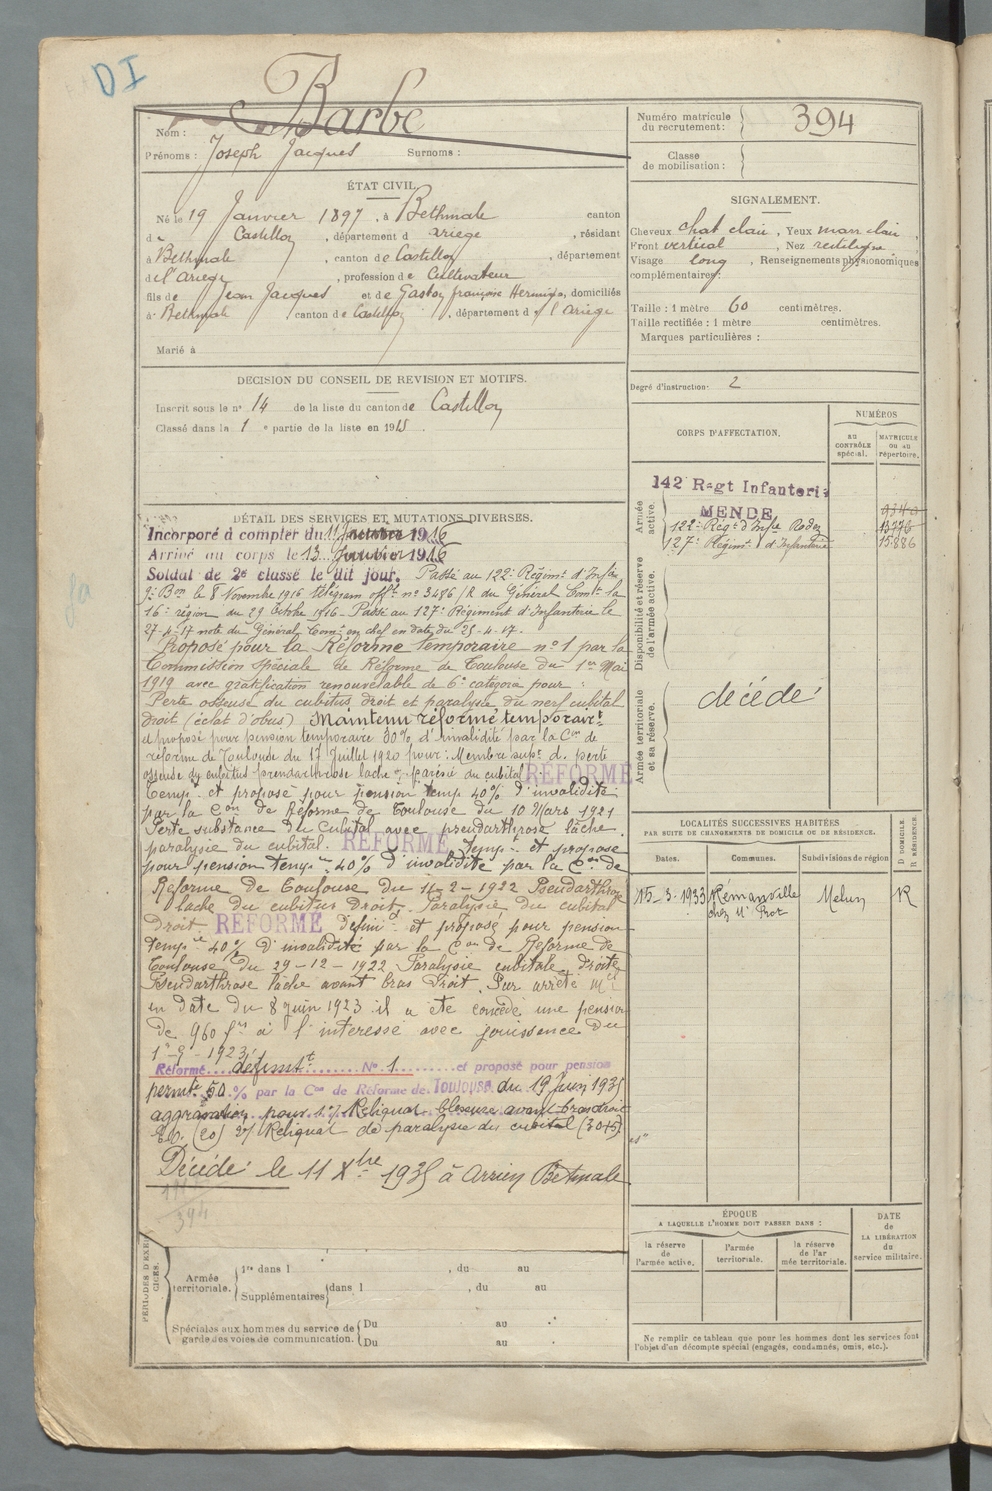 DI
Nom : Barbe
Prénoms : Joseph Jacques Surnoms :
ÉTAT CIVIL.
Né le 19 Janvier 1897, à Bethmale canton
d Castillon, département d ariege, résidant
à Bethmale, canton de Castillon, département
de l'Ariege, profession de Cultivateur
fils de Jean Jacques et de Gaston françoise Herminie, domiciliés
à Bethmale canton de Castillon, département de l'Ariege
Marié à
DÉCISION DU CONSEIL DE REVISION ET MOTIFS.
Inscrit sous le n° 14 de la liste du canton de Castillon
Classé dans la 1e partie de la liste en 1915.
DÉTAIL DES SERVICES ET MUTATIONS DIVERSES.
Incorporé à compter du 1916
Arrivé au corps le 13 Janvier 1916
Soldat de 2e classe le dit jour. Passé au 122e Régimt d'Infie
9e Bon le 8 Novembre 1916 télégram offl n° 3486/R du Général Comt la
16e région du 29 Octobre 1916 - Passé au 127e Régiment d'Infanterie le
27-4-17 note du Général Comt en chef en date du 25-4-17.
Proposé pour la Réforme temporaire n° 1 par la
Commission spéciale de Réforme de Toulouse du 1er Mai
1919 avec gratification renouvelable de 6e catégorie pour :
Perte osseuse du cubitus droit et paralysie du nerf cubital
droit (éclat d'obus) Maintenu réformé temporaire
et proposé pour pension temporaire 30% d'invalidité par la Con de
réforme de Toulouse du 17 Juillet 1920 pour : Membre supr d. perte
osseuse du cubitus pseudarthrose lache parésie du cubital RÉFORMÉ
tempe et proposé pour pension temp 40% d'invalidité
par la Con de Réforme de Toulouse du 10 Mars 1921
Perte substance du cubital avec pseudarthrose lâche
paralysie du cubital. RÉFORMÉ Tempe et proposé
pour pension tempre 40% d'invalidité par la Con de
Réforme de Toulouse du 4-2-1922 Pseudarthrose
lache du cubitus Droit. Paralysie du cubital
droit RÉFORMÉ définitf et proposé pour pension
tempre 40% d'invalidité par la Con de Réforme de
Toulouse du 29-12-1922 Paralysie cubitale droite
Pseudarthrose lâche avant bras Droit. Par arrêté Mel
en date du 8 Juin 1923 il a été concédé une pension
de 960 frs à l'intéressé avec jouissance du
1-9-1923
Réformé définitt N° 1 et proposé pour pension
permte 50 % par la Con de Réforme de Toulouse du 19 Juin 1935
aggravation pour 1°/ Reliquat blessure avant bras droit
(20) 2°/ Reliquat de paralysie du cubital (30+5)
Décédé le 11 Xbre 1935 à Arrien Betmale
394
PÉRIODES D'EXERCICES.
Armée territoriale. 1re dans l , du au
Supplémentaires dans l , du au
Spéciales aux hommes du service de garde des voies de communication. Du au
Du au
Numéro matricule du recrutement : 394
Classe de mobilisation :
SIGNALEMENT.
Cheveux chat clair, Yeux marr clair,
Front vertical, Nez rectiligne
Visage long, Renseignements physionomiques
complémentaires :
Taille : 1 mètre 60 centimètres.
Taille rectifiée : 1 mètre centimètres.
Marques particulières :
Degré d'instruction : 2
CORPS D'AFFECTATION.
NUMÉROS
au CONTRÔLE spécial.
MATRICULE ou au répertoire.
Armée active.
142e Regt Infanterie
MENDE
122e Régt d'Infie Rodez 13776
127e Régimt d'Infanterie 15886
Disponibilité et réserve de l'armée active.
Armée territoriale et sa réserve.
décédé
LOCALITÉS SUCCESSIVES HABITÉES
PAR SUITE DE CHANGEMENTS DE DOMICILE OU DE RÉSIDENCE.
D DOMICILE. R RÉSIDENCE.
Dates. Communes. Subdivisions de région
15-3-1933 Rémauville Melun R
chez Mr
ÉPOQUE
A LAQUELLE L'HOMME DOIT PASSER DANS :
la réserve de l'armée active.
l'armée territoriale.
la réserve de l'armée territoriale.
DATE de LA LIBÉRATION du service militaire.
Ne remplir ce tableau que pour les hommes dont les services font
l'objet d'un décompte spécial (engagés, condamnés, omis, etc.).